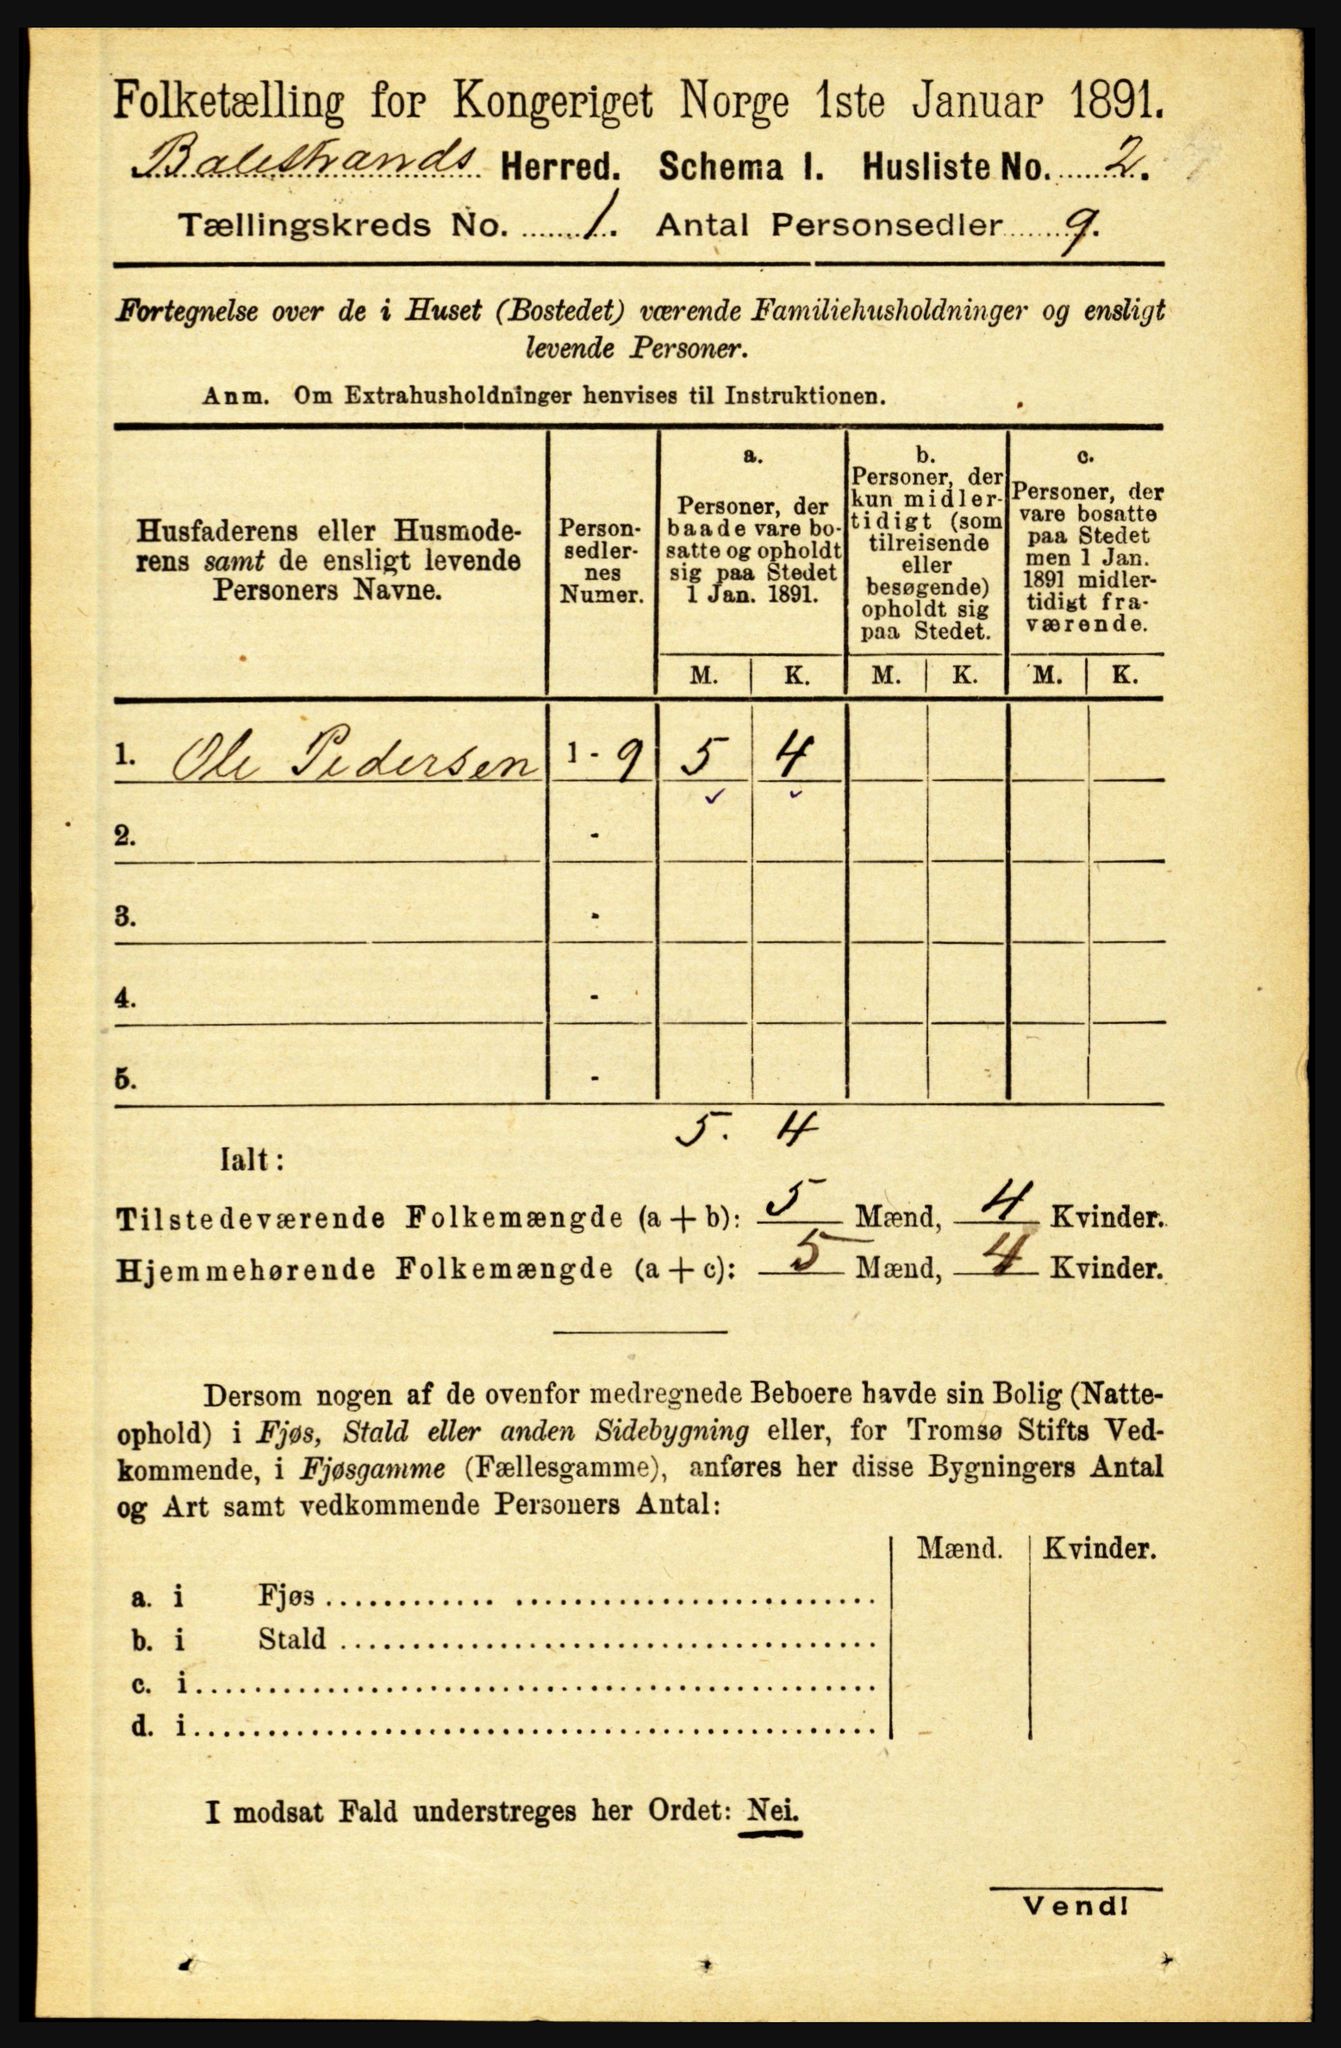 Folketælling for Kongeriget Norge 1ste Januar 1891.
Balestrands Herred. Schema I. Husliste No. 2.
Tællingskreds No. 1. Antal Personsedler 9.
Fortegnelse over de i Huset (Bostedet) værende Familiehusholdninger og ensligt
levende Personer.
Anm. Om Extrahusholdninger henvises til Instruktionen.
Husfaderens eller Husmode-
rens samt de ensligt levende
Personers Navne.
Person-
sedler-
nes
Numer.
a.
Personer, der
baade vare bo-
satte og opholdt
sig paa Stedet
1 Jan. 1891.
b.
Personer, der
kun midler-
tidigt (som
tilreisende
eller
besøgende)
opholdt sig
paa Stedet.
c.
Personer, der
vare bosatte
paa Stedet
men 1 Jan.
1891 midler-
tidigt fra-
værende.
M. K. M. K. M. K.
1. Ole Pedersen 1 - 9 5 4
2. -
3. -
4. -
5. -
5. 4
Ialt:
Tilstedeværende Folkemængde (a + b): 5 Mænd, 4 Kvinder.
Hjemmehørende Folkemængde (a + c): 5 Mænd, 4 Kvinder.
Dersom nogen af de ovenfor medregnede Beboere havde sin Bolig (Natte-
ophold) i Fjøs, Stald eller anden Sidebygning eller, for Tromsø Stifts Ved-
kommende, i Fjøsgamme (Fællesgamme), anføres her disse Bygningers Antal
og Art samt vedkommende Personers Antal:
Mænd. Kvinder.
a. i Fjøs
b. i Stald
c. i
d. i
I modsat Fald understreges her Ordet: Nei.
Vend!